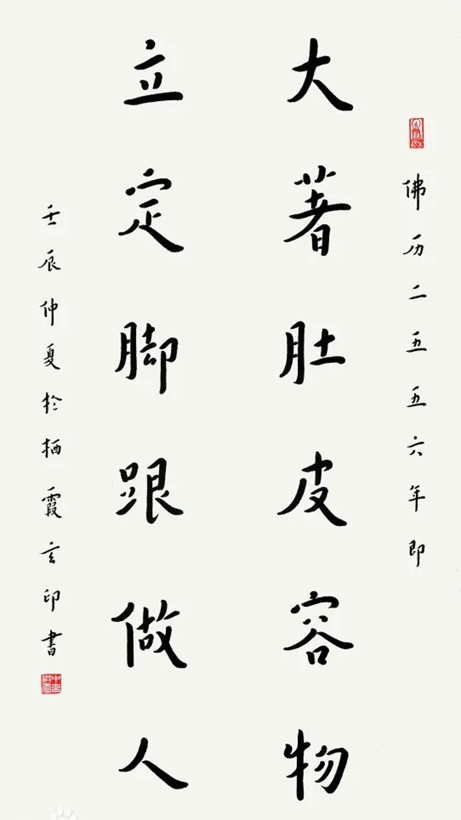 佛历二五五六年即
大著肚皮容物
立定脚跟做人
壬辰仲夏於栖霞玄印書